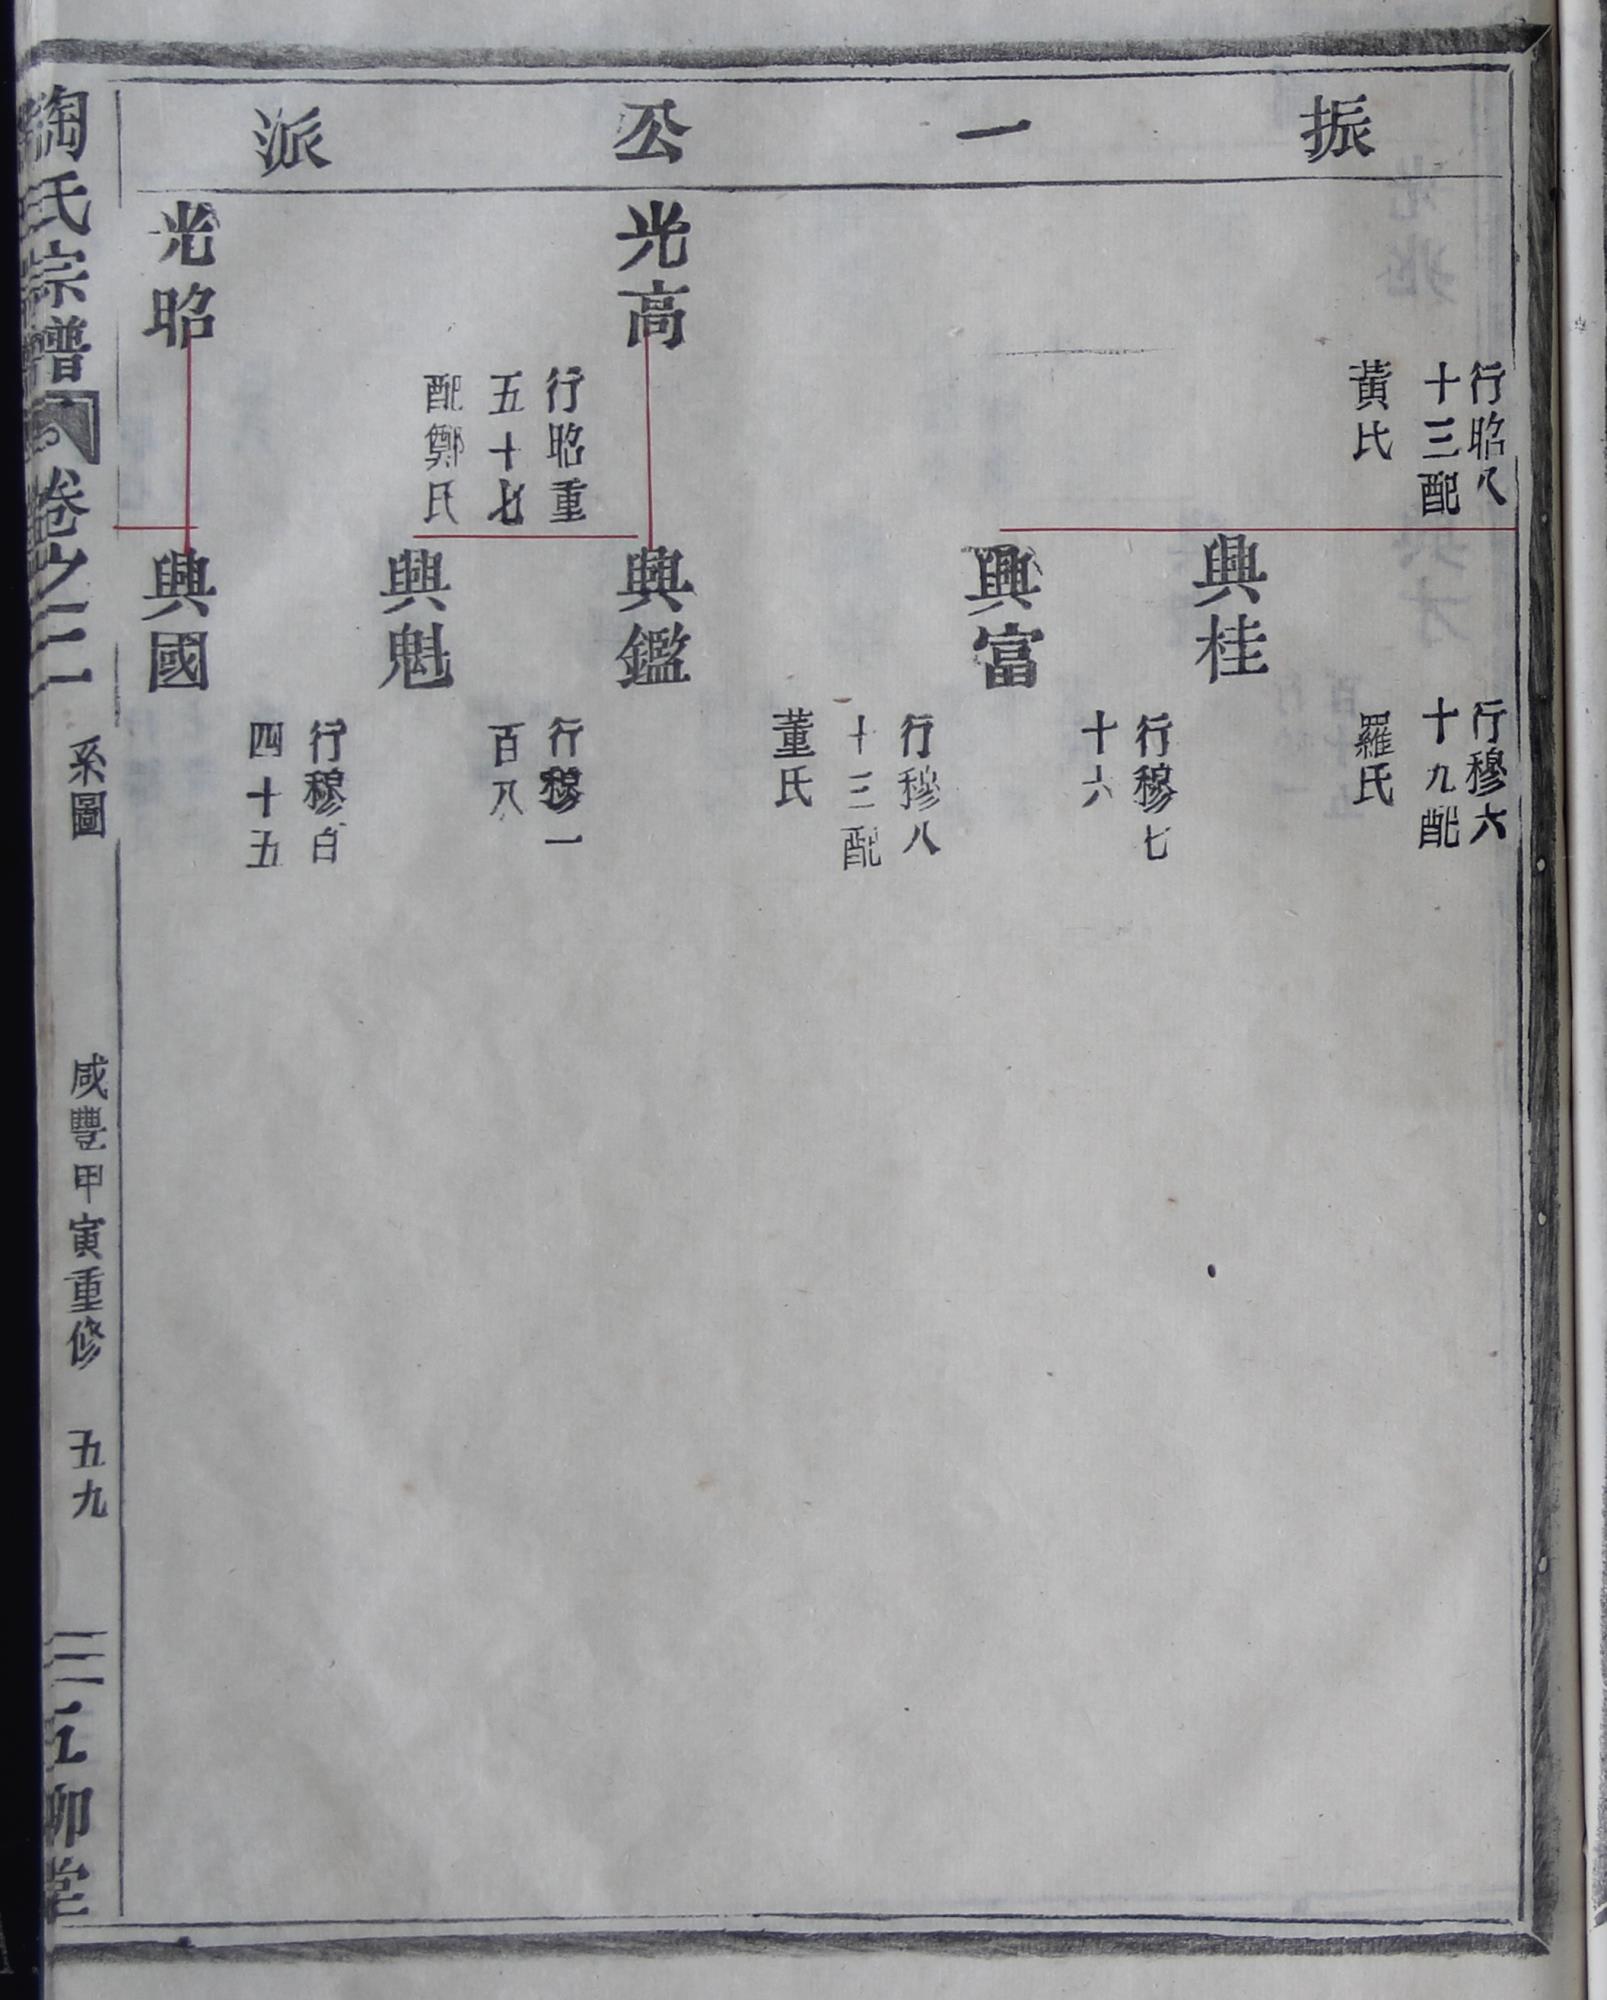 振一公派
行昭八
十三配
黃氏
光高
行昭重
五十七
配鄭氏
光昭
行穆六
十九配
羅氏
興桂
行穆七
十六
興富
行穆八
十三配
董氏
興鑑
行穆一
百八
興魁
行穆百
四十五
興國
陶氏宗譜
卷之三
系圖
咸豐甲寅重修
五九
五柳堂